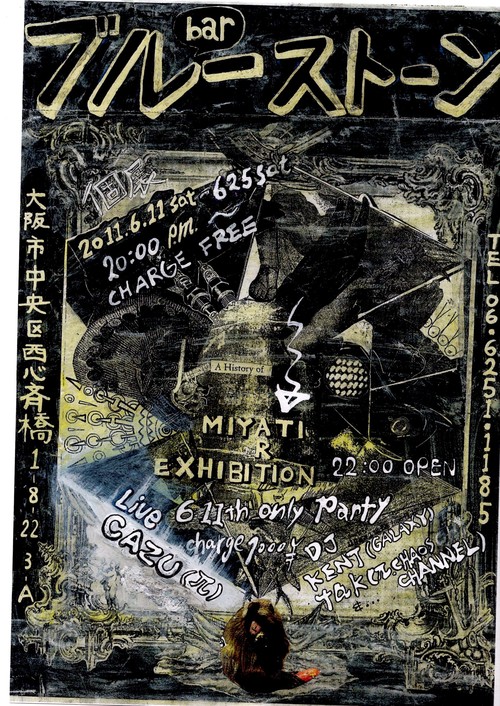 bar
ブルーストーン
個展
2011.6.11 sat - 6 25 sat
20:00 P.M. ~
CHARGE FREE
大阪市中央区西心斎橋1-8-22 3-A
TEL 06.6251.1185
A History of
MIYATI
R
EXHIBITION
22:00 OPEN
Live 6-11th only Party
CAZU
charge 1000
DJ
KENT (GALAXY)
CHAOS
CHANNEL)